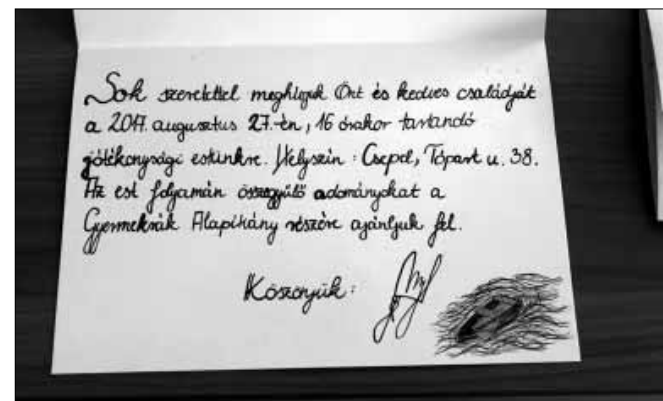 Sok szeretettel meghívjuk Önt és kedves családját
a 2017. augusztus 27.-én, 16 órakor tartandó
jótékonysági estünkre. Helyszín: Csepel, Tópart u. 38.
Az est folyamán összegyűlő adományokat a
Gyermekrák Alapítvány részére ajánljuk fel.
Köszönjük: